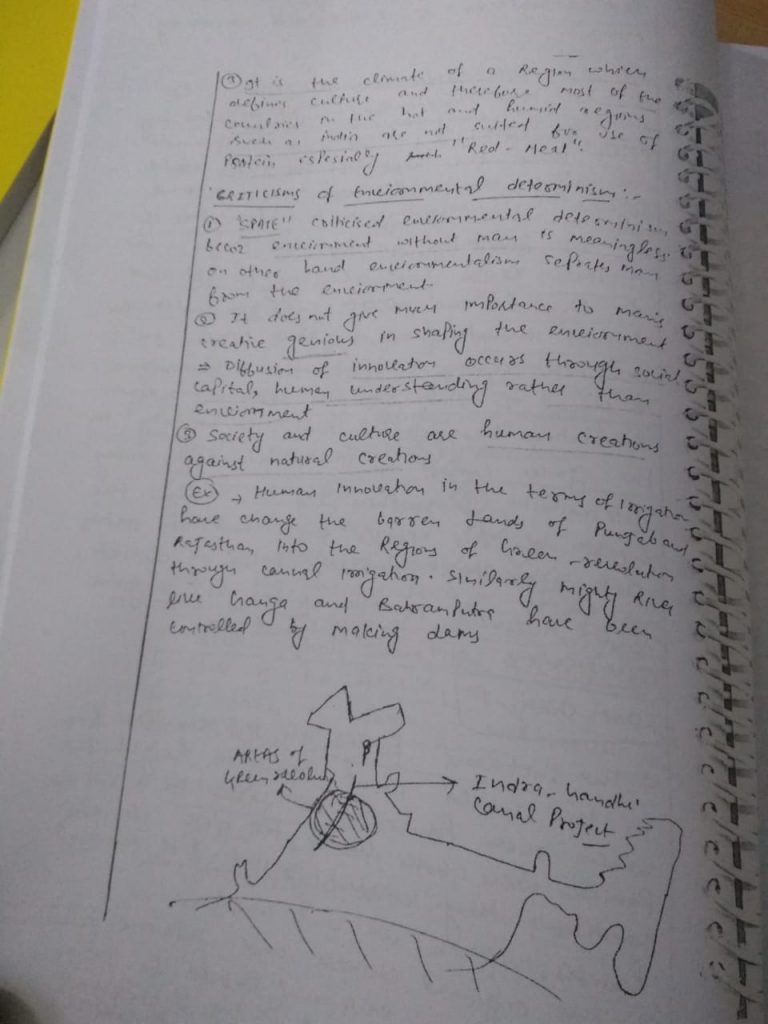 ① It is the climate of a Region which
defines culture and therefore most of the
countries in the hot and humid regions
such as india are not suited for use of
protein especially "Red-Meat".
CRITICISMS of Enviornmental determinism:-
① "SPATE" criticised enviornmental determinism
becoz enviornment without man is meaningless
on other hand enviornmentalism seprates man
from the enviorment
② It does not give much importance to man's
creative genious in shaping the enviornment
⇒ Diffusion of innovation occurs through social
capital, human understanding rather than
enviornment
③ Society and culture are human creations
against natural creations
Ex → Human Innovation in the terms of irrigation
have change the barren Lands of Punjab and
Rajasthan into the Regions of Green-revolution
through cannal irrigation. Similarly mighty River
like Ganga and have been
controlled by making dams
AREAS of
Green revolution
P
Indra-Gandhi
Canal Project